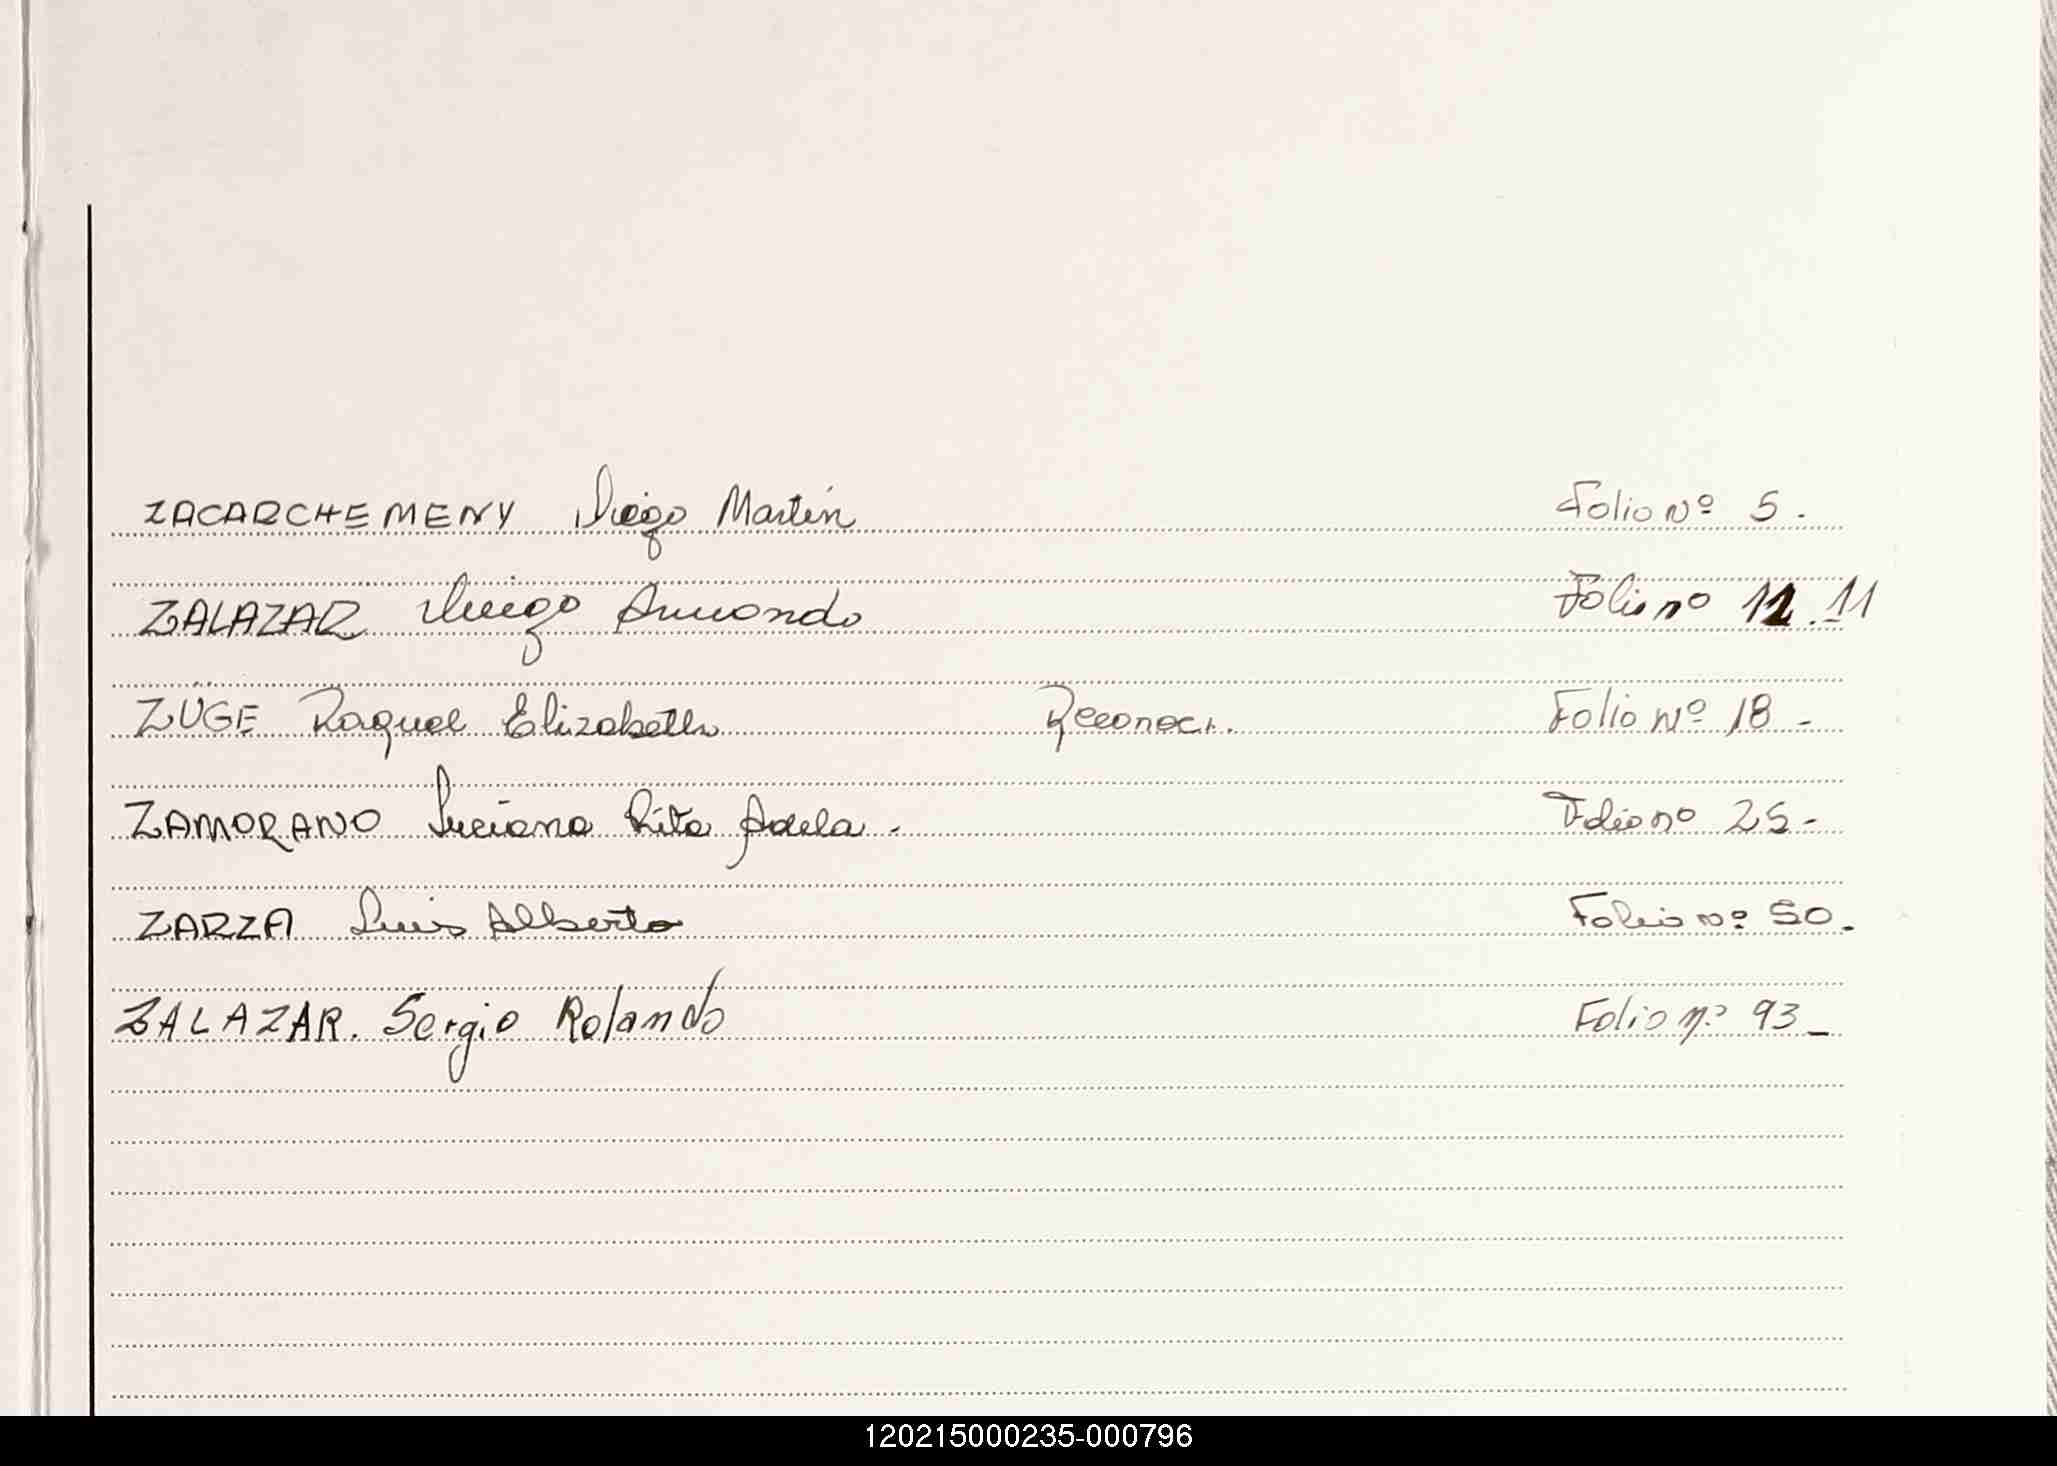 ZACARCHEMENY Diego Martín Folio Nº 5.
ZALAZAR Diego Armando Folio nº 12. 11
ZÜGE Raquel Elizabeth Reconoci. Folio Nº 18 -
ZAMORANO Luciana Rita Adela. Folio nº 25 -
ZARZA Luis Alberto Folio Nº 50.
ZALAZAR. Sergio Rolando Folio nº 93 -
120215000235-000796